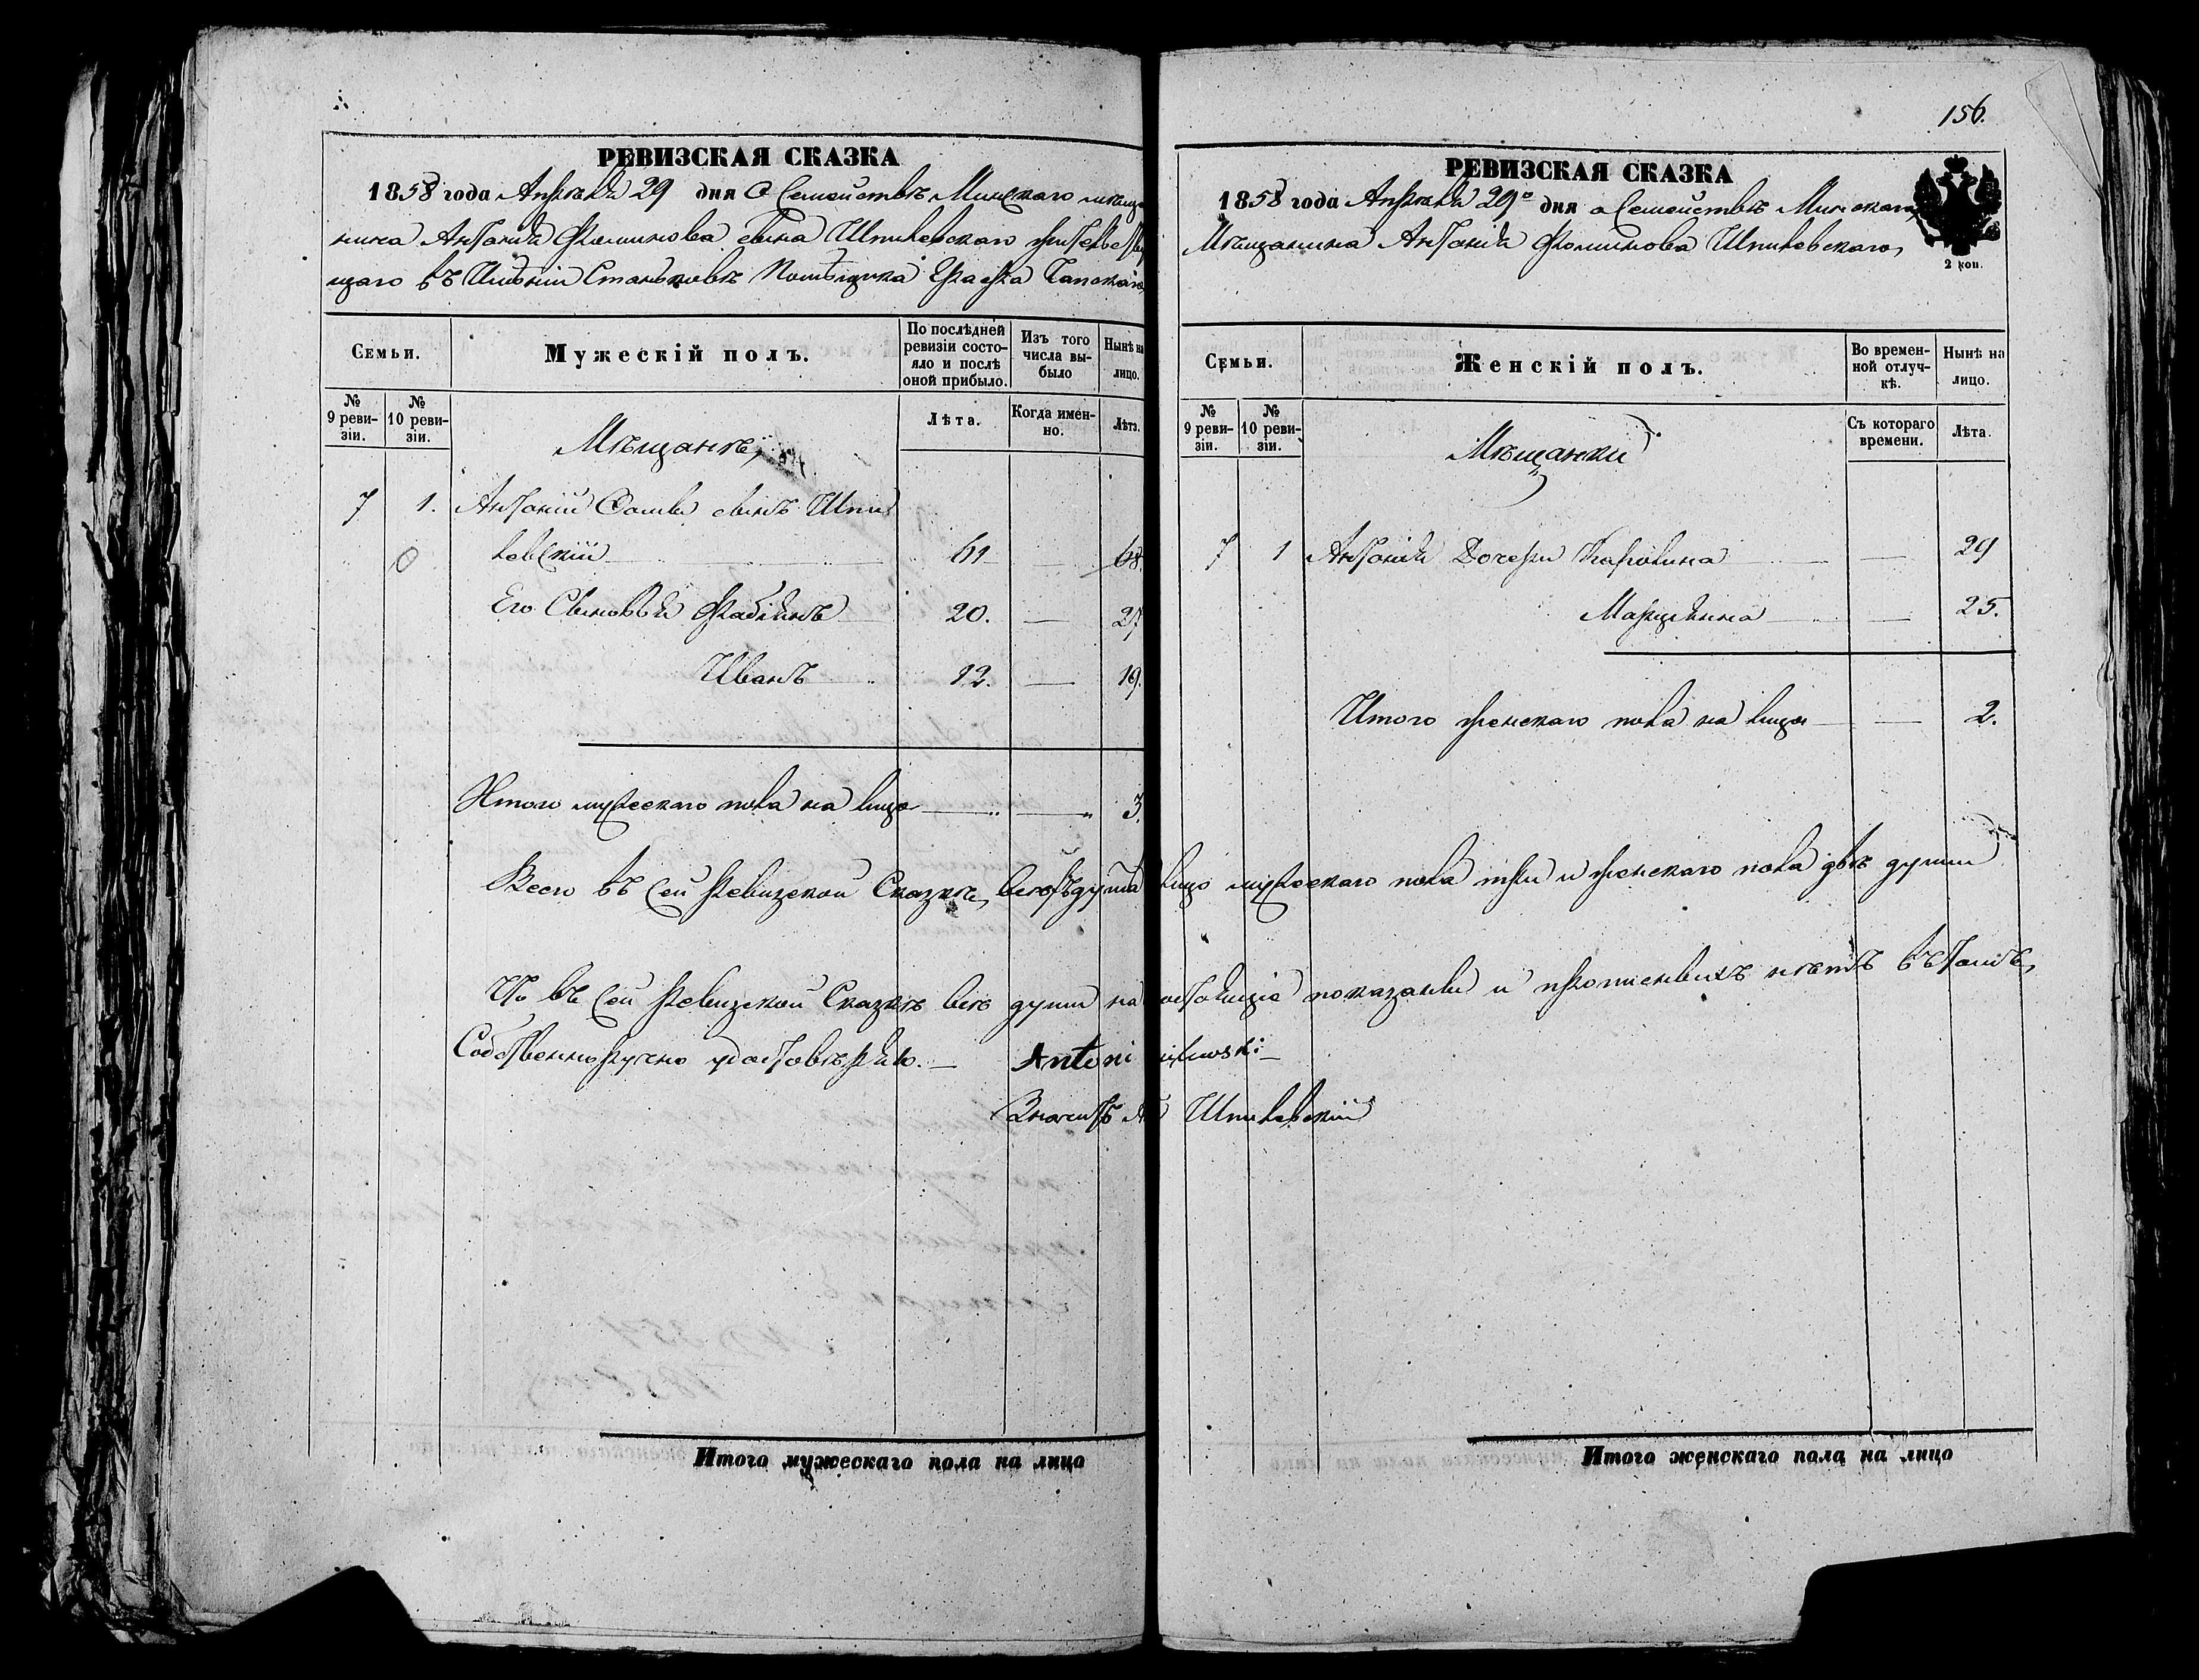 РЕВИЗСКАЯ СКАЗКА
1858 года Апрѣля 29 дня О Семействѣ Минскаго мѣща
нина Антонія Фоминова сына Шпилевскаго жительству
щаго въ Имѣніи Станьковѣ Помѣщика Графа Чапскаго
Семьи.
Мужескій полъ.
По послѣдней ревизіи состояло и послѣ оной прибыло.
Изъ того числа выбыло
Нынѣ на лицо.
№ 9 ревизіи.
№ 10 ревизіи.
Лѣта.
Когда именно.
Лѣта.
Мѣщане,
7 1. Антоній Фомы сынъ Шпи
левскій 61 68.
Его Сыновья Фабіянъ 20. 27
Иванъ 12. 19.
Итого мужескаго пола на лицо 3.
156.
РЕВИЗСКАЯ СКАЗКА
1858 года Апрѣля 29 дня о Семействѣ Минскаго
Мѣщанина Антонія Фоминова Шпилевскаго,
2 коп.
Семьи.
Женскій полъ.
Во временной отлучкѣ.
Нынѣ на лицо.
№ 9 ревизіи.
№ 10 ревизіи.
Съ котораго времени.
Лѣта.
Мѣщанки
7 1 Антонія Дочери Каролина 29
Марцянна 25.
Итого женскаго пола на лицо 2.
Всего въ сей Ревизской Сказкѣ, лицо мужескаго пола три и женскаго пола двѣ души
Что въ сей Ревизской Сказкѣ всѣ души на показаны и прописныхъ нѣтъ въ томъ,
Собственноручно удостовѣряю. Antoni
Значитъ Шпилевскій
Итого мужескаго пола на лицо
Итого женскаго пола на лицо